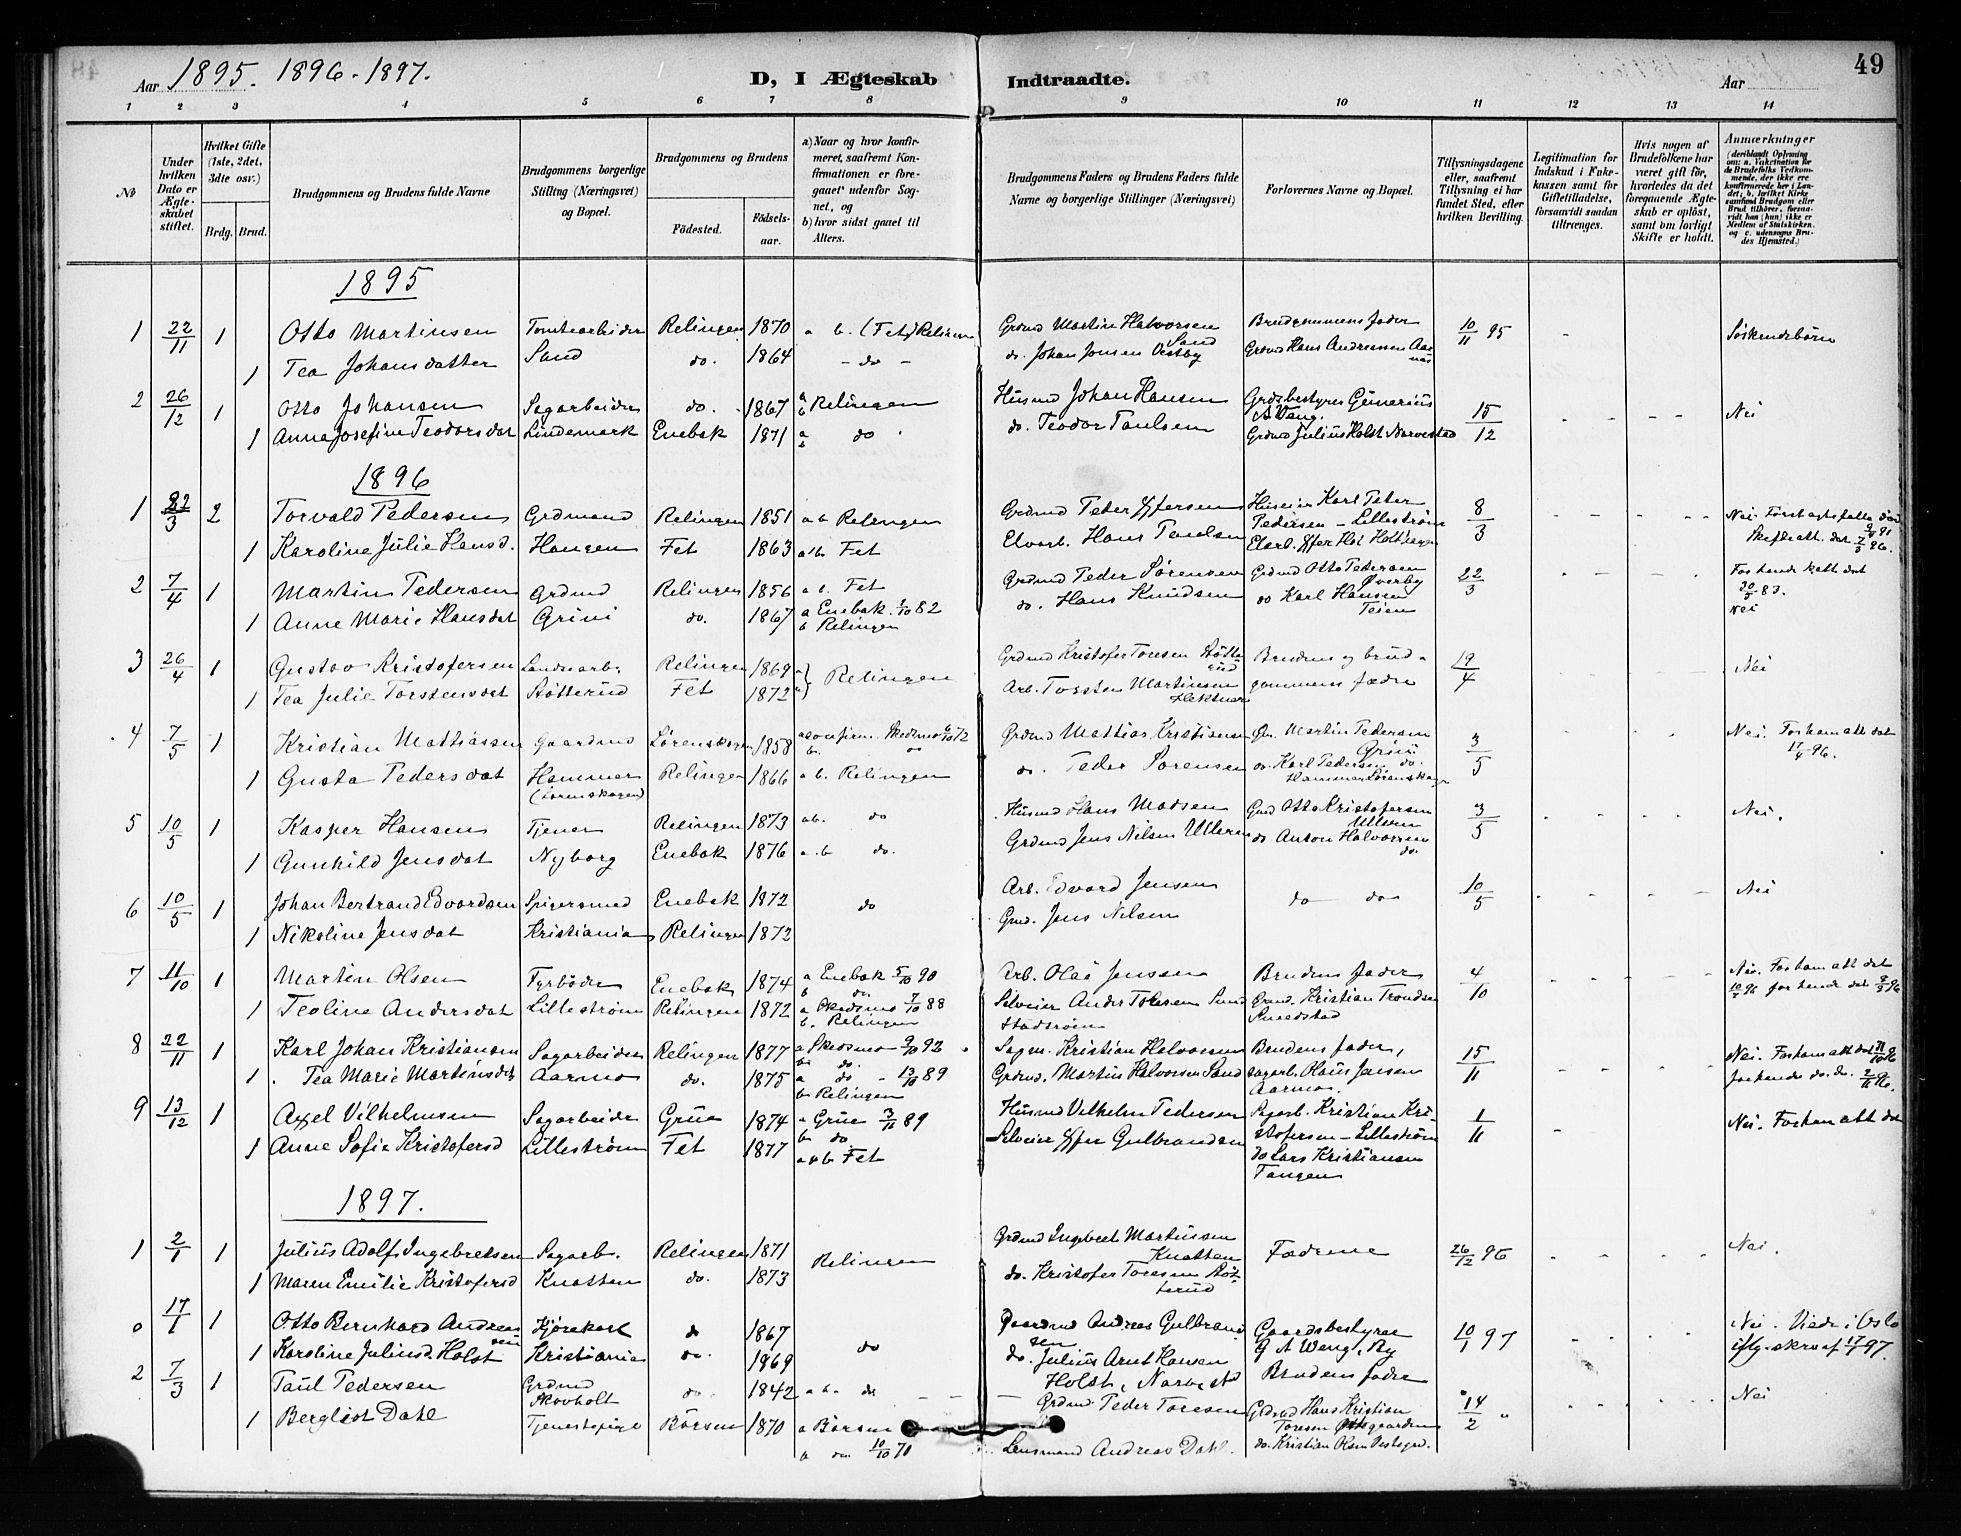 49
Aar 1895. 1896-1897.
D, I Ægteskab Indtraadte.
Aar
1 2 3 4 5 6 7 8 9 10 11 12 13 14
No
Under hvilken Dato er Ægteskabet stiftet.
Hvilket Gifte (1ste, 2det, 3die osv.)
Brdg. Brud.
Brudgommens og Brudens fulde Navne
Brudgommens borgerlige Stilling (Næringsvei) og Bopæl.
Brudgommens og Brudens
Fødested. Fødselsaar.
a) Naar og hvor konfirmeret, saafremt Konfirmationen er foregaaet udenfor Sognet, og
b) hvor sidst gaaet til Alters.
Brudgommens Faders og Brudens Faders fulde Navne og borgerlige Stillinger (Næringsvei)
Forlovernes Navne og Bopæl.
Tillysningsdagene eller, saafremt Tillysning ei har fundet Sted, efter hvilken Bevilling.
Legitimation for Indskud i Enkekassen samt for Giftetilladelse, forsaavidt saadan tiltrænges.
Hvis nogen af Brudefolkene har været gift før, hvorledes da det foregaaende Ægteskab er opløst, samt om lovligt Skifte er holdt.
Anmærkninger
1895
1 22/11 1 Otto Martinsen Tomtearbeider Relingen 1870 a b. (Fet) Relingen Grdmd Martin Halvorsen Sand Brudgommens fader 10/11 95 - Søskendebørn
1 Tea Johansdatter Sand do. 1864 - do - do. Johan Jonsen Vestby Grdmd Hans Andreassen Aamas
2 26/12 1 Otto Johansen Sagarbeider do. 1867 a b Relingen Husmd Johan Hansen Grdsbestyrer Gunerius A Weng. 15/12 - - - - Nei
1 Anna Josefine Teodorsdat Lindemark Enebak 1871 a b do do. Teodor Paulsen Grdmd Julius Holst Narvestad
1896
1 22/3 2 Torvald Pedersen Grdmand Relingen 1851 a b Relingen Grdmd Peter Iffersen Huseier Karl Peter Pedersen - Lillestrøm 8/3 - - - - Nei.
1 Karoline Julie Hansd. Haugen Fet 1863 a b Fet Elvarb. Hans Paulsen
2 7/4 1 Martin Pedersen Grdmd Relingen 1856 a b. Fet Grdmd Peder Sørensen Grdmd Otto Pedersen Øverby 22/3 - - - -
1 Anne Marie Hansdat Grini do. 1867 a Enebak 1/10 82 b Relingen do. Hans Knudsen do Karl Hansen Teien Nei
3 26/4 1 Gustav Kristofersen Relingen 1869 a) Relingen Grdmd Kristofer Toresen Støtterud Brudens og brudgommens fædre 19/4 - - - - Nei
1 Tea Julie Torstensdat Støtterud Fet 1872 a) Arb. Torsten Martinsen
4 7/5 1 Kristian Mattiassen Gaardmd Lørenskogen 1858 a confirm. Skedsmo 6/10 72 b. do Grdmd Mattias Kristiansen Martin Pedersen Grini 3/5 Nei. 17/4 96.
1 Gusta Pedersdat Hammer (Lørenskogen) Relingen 1866 a b. Relingen do. Peder Sørensen do. Karl Pedersen do. Hammer Lørenskogn
5 10/5 1 Kasper Hansen Tjener Relingen 1873 ab. do Husmd Hans Madsen Grd Otto Kristofersen Ulleren 3/5 - - - - Nei.
1 Gunhild Jensdat Nyborg Enebak 1876 a. b do. Grdmd Jens Nilsen Ulleren do Anton Halvorsen do.
6 10/5 1 Johan Bertrand Edvardsen Spigersmed Enebak 1872 do Arb. Edvard Jensen do do 10/5 - - - - Nei
1 Nikoline Jensdat Kristiania Relingen 1872 Grmd. Jens Nilsen
7 11/10 1 Martin Olsen Fyrbøder Enebak 1874 a Enebak 5/10 90 b do Arb. Olai Jensen Brudens fader 4/10 - - - - Nei.
1 Teoline Andersdat Lillestrøm Relingen 1872 a Skedsmo 7/10 88 b. Relingen Selveier Anders Toresen Kristian Trondsen Smedstad
8 22/11 1 Karl Johan Kristiansen Sagarbeider Relingen 1877 a Skedsmo 9/10 92 b do. Kristian Halvorsen Brudens fader, 15/11 - - - - Nei.
1 Tea Marie Martinsdat Aarmo do. 1875 a do - 13/10 89 b Relingen Grdmd. Martin Halvorsen Sand Sagarb. Hans Jensen Aarmo.
9 13/12 1 Axel Vilhelmsen Sagarbeider Grue 1874 a Grue 3/11 89 b do Husmd Vilhelm Pedersen Sagarb. Kristian Kristofersen - Lillestrøm 1/11 - Nei.
1 Anne Sofie Kristofersd Lillestrøm Fet 1877 a b Fet Selveier Iffer Gulbrandsen do Lars Kristiansen Tangen
1897.
1 2/1 1 Julius Adolf Ingebretsen Sagarb. Relingen 1871 Relingen Grdmd Ingebret Martinsen Knatten Fædrene 26/12 96 - - - - Nei.
1 Maren Emilie Kristofersd Knatten do. 1873 do. Kristofer Toresen Støtterud
0 17/1 1 Otto Bernhard Andreassen Kjørekarl do 1867 do Gaardmd Andreas Gulbrandsen Gaardsbestyrer G A Weng, Ry 10/1 97 - - - - Nei. Viede i Oslo iflg. skr. af 17/1 97.
1 Karoline Juliusd. Holst Kristiania do. 1869 do. Julius Arnt Hansen Holst, Narvestd Brudens fader
2 7/3 1 Paul Pedersen Grdmd Skovholt do. 1842 a. b. do Grdmd. Peder Toresen Grdmd Hans Kristian Toresen 14/2 " - - - Nei
1 Bergliot Dahl Tjenestepige Børsen 1870 a Børsen b do 10/10 70 Lensmand Andreas Dahl. do. Kristian Olsen Vestgrd.